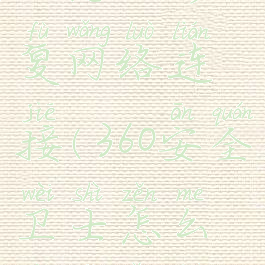 fù wǎng luò lián
复网络连
jiē ān quán
接(360安全
wèi shì zěn me
卫士怎么